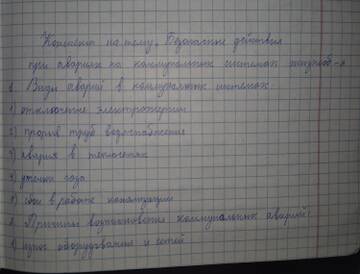 Конспект на тему: Безопасные действия
при авариях на коммунальных системах жизнеоб-я
1. Виды аварий в коммунальных системах:
1) отключение электроэнергии
2) прорыв труб водоснабжения
3) авария в теплосетях
4) утечка газа
5) сбои в работе канализации
2. Причины возникновения коммунальных аварий:
1) износ оборудования и сетей